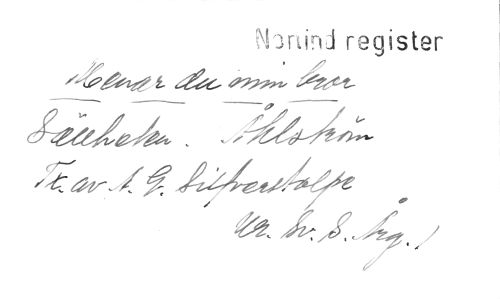 Nortind register
Menar du min bror
Sällheten. Åhlström
Tx. av A. G. Silfverstolpe
Ur. Sv. S. Årg. 1